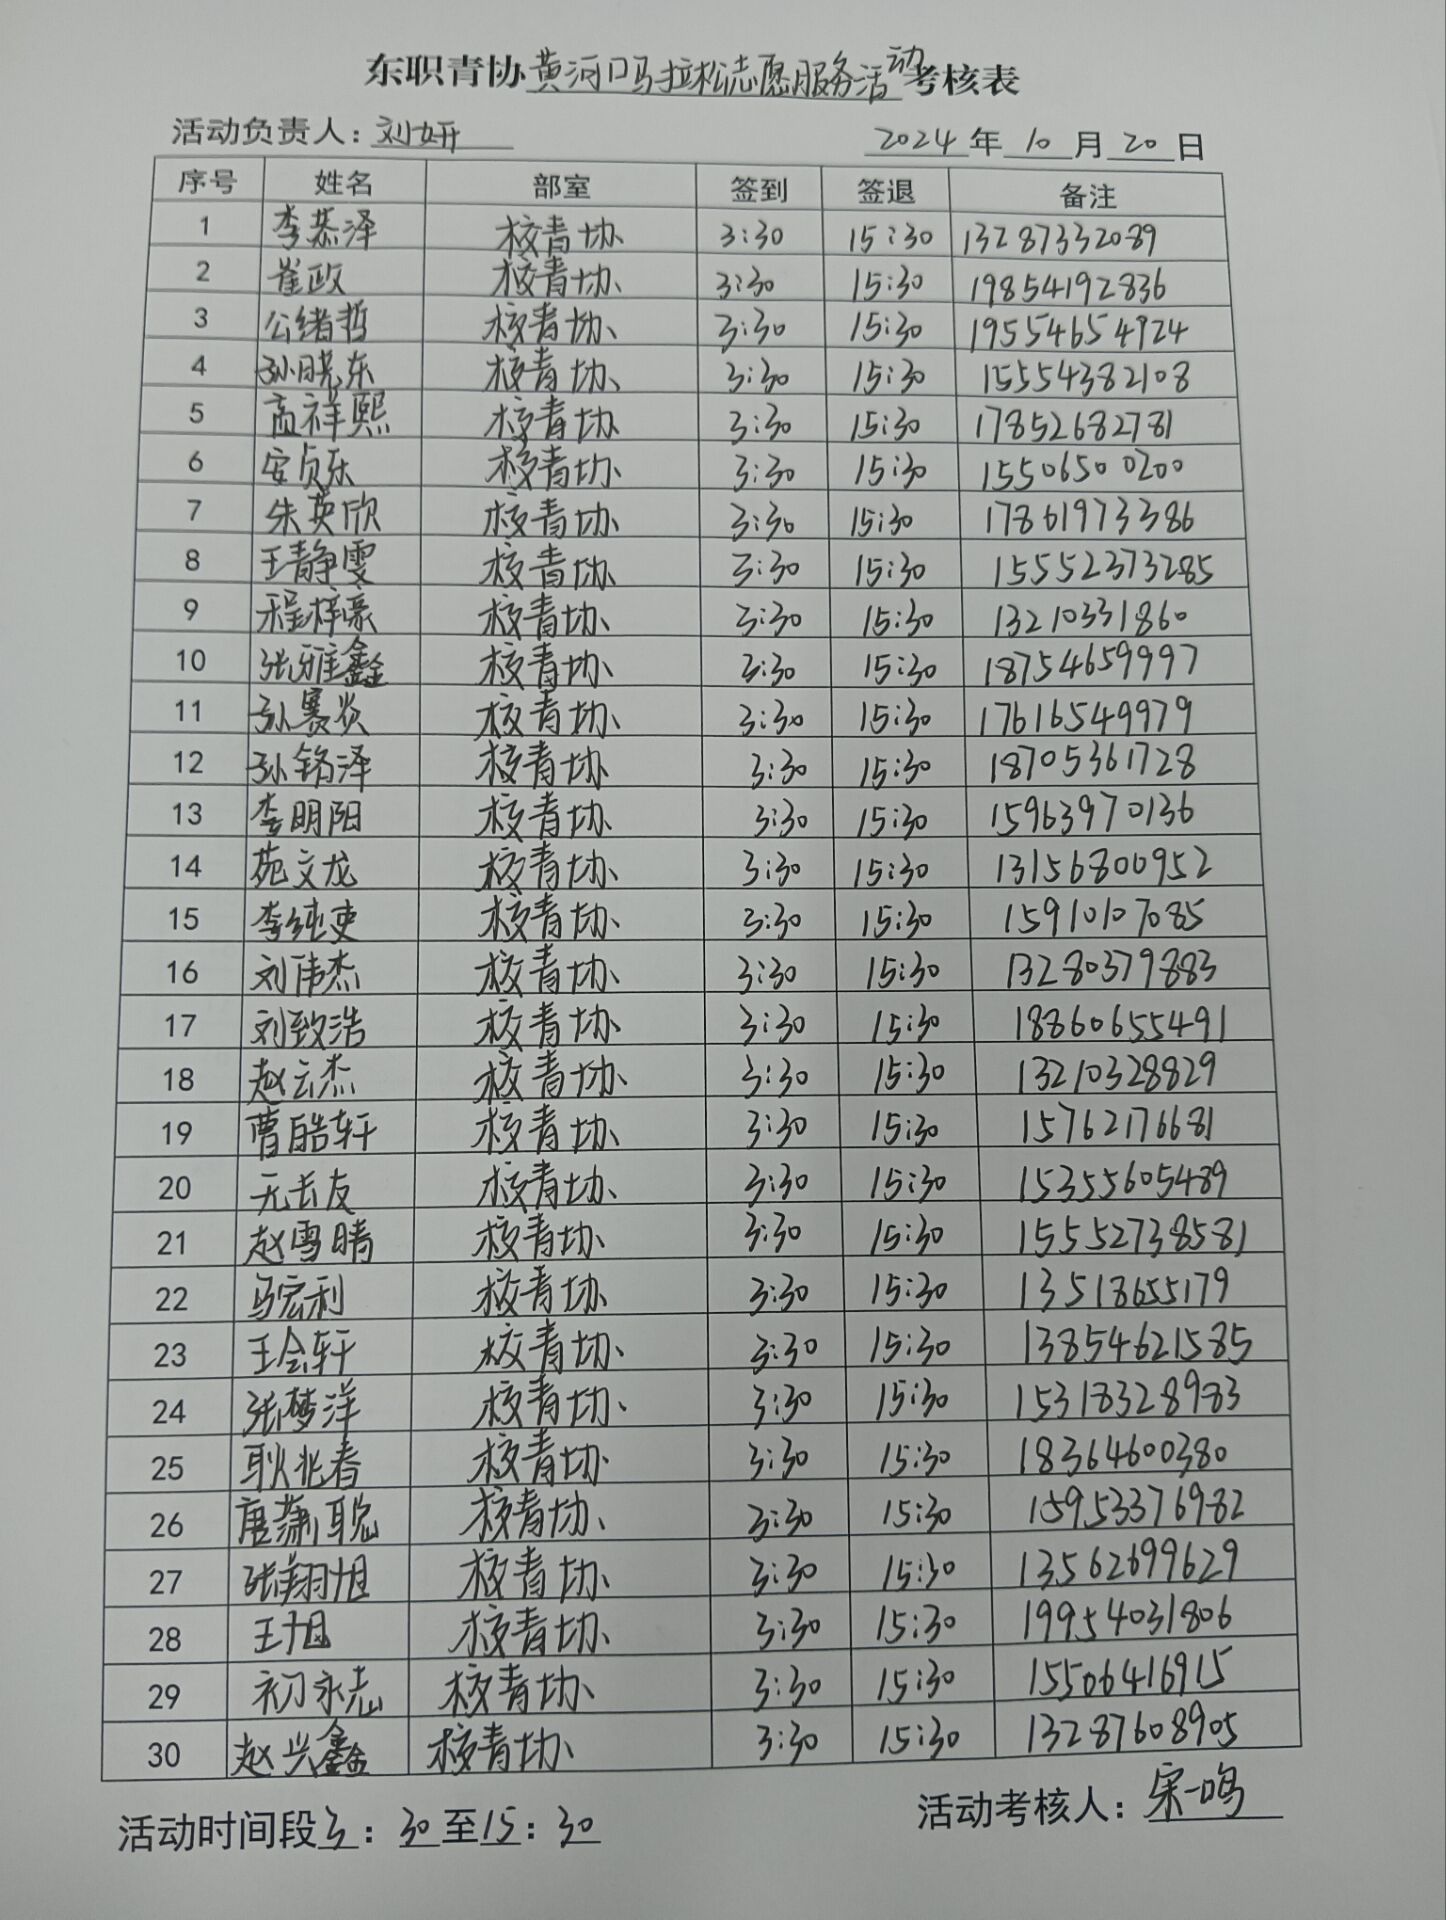 东职青协黄河口马拉松志愿服务活动考核表
活动负责人:刘妍 2024年10月20日
序号 姓名 部室 签到 签退 备注
1 李恭泽 校青协 3:30 15:30 13287332089
2 崔政 校青协 3:30 15:30 19854192836
3 公绪哲 校青协 3:30 15:30 19554654924
4 孙晓东 校青协 3:30 15:30 15554382108
5 孟祥熙 校青协 3:30 15:30 17852682781
6 安贞乐 校青协 3:30 15:30 15506500200
7 朱英欣 校青协 3:30 15:30 17861973386
8 王静雯 校青协 3:30 15:30 15552373285
9 程梓豪 校青协 3:30 15:30 13210331860
10 张雅鑫 校青协 3:30 15:30 18754659997
11 孙赛炎 校青协 3:30 15:30 17616549979
12 孙铭泽 校青协 3:30 15:30 18705361728
13 李明阳 校青协 3:30 15:30 15963970136
14 苑文龙 校青协 3:30 15:30 13156800952
15 李纯吏 校青协 3:30 15:30 15910107085
16 刘伟杰 校青协 3:30 15:30 13280379883
17 刘致浩 校青协 3:30 15:30 18860655491
18 赵云杰 校青协 3:30 15:30 13210328829
19 曹皓轩 校青协 3:30 15:30 15762176681
20 元长友 校青协 3:30 15:30 15355605489
21 赵雪晴 校青协 3:30 15:30 15552738581
22 马宏利 校青协 3:30 15:30 13518655179
23 王会轩 校青协 3:30 15:30 13854621585
24 张梦洋 校青协 3:30 15:30 15318328983
25 耿兆春 校青协 3:30 15:30 18364600380
26 唐萧聪 校青协 3:30 15:30 15953376982
27 张翔旭 校青协 3:30 15:30 13562699629
28 王旭 校青协 3:30 15:30 19954031806
29 初永志 校青协 3:30 15:30 15506416915
30 赵兴鑫 校青协 3:30 15:30 13287608905
活动时间段3:30至15:30 活动考核人:宋一鸣